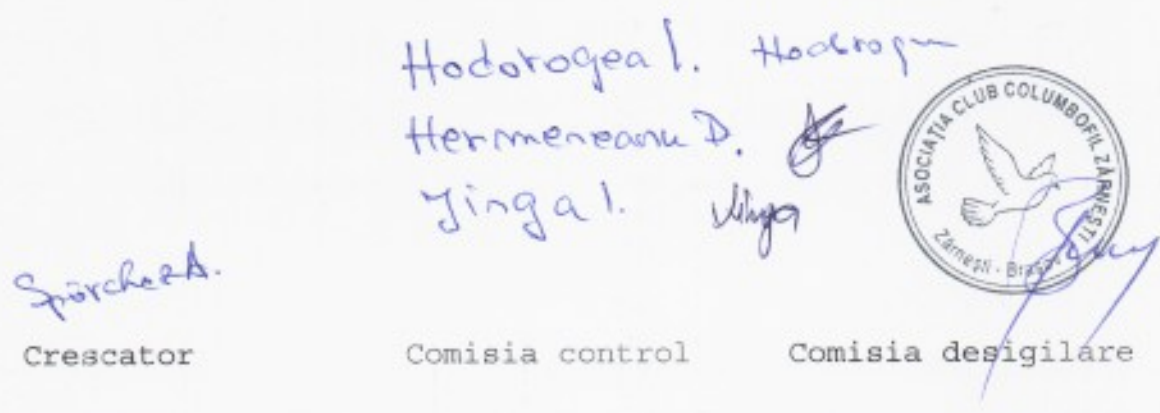 Hodorogea I. Hodorogea
Hermeneanu D.
Jinga I. Jinga
ASOCIAȚIA CLUB COLUMBOFIL ZĂRNEȘTI
Zărnești - Brașov
Spörchez A.
Crescator Comisia control Comisia desigilare